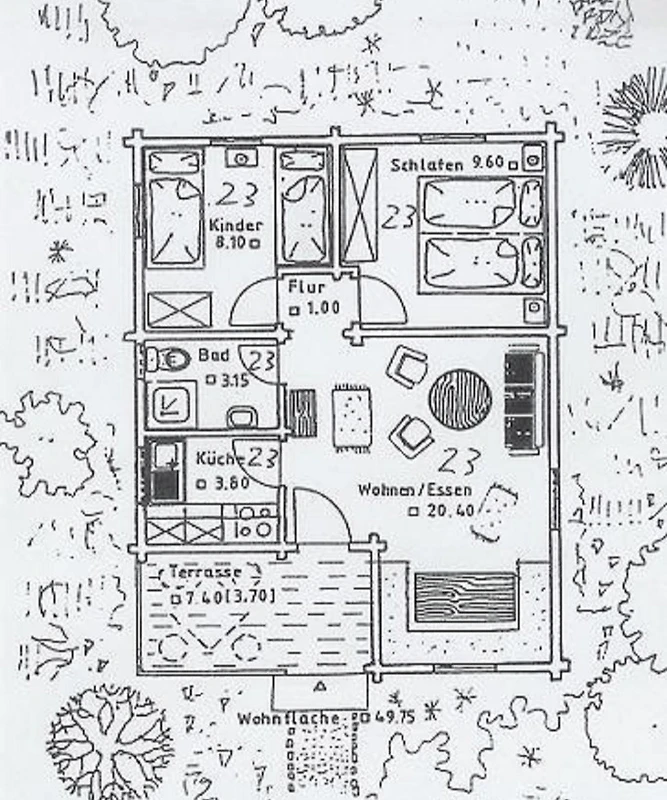 Schlafen 9.60
23
Kinder
8.10
23
Flur
1.00
Bad 23
3.15
Küche 23
3.80
23
Wohnen/Essen
20.40
Terrasse
7.40[3.70]
Wohnfläche 49.75